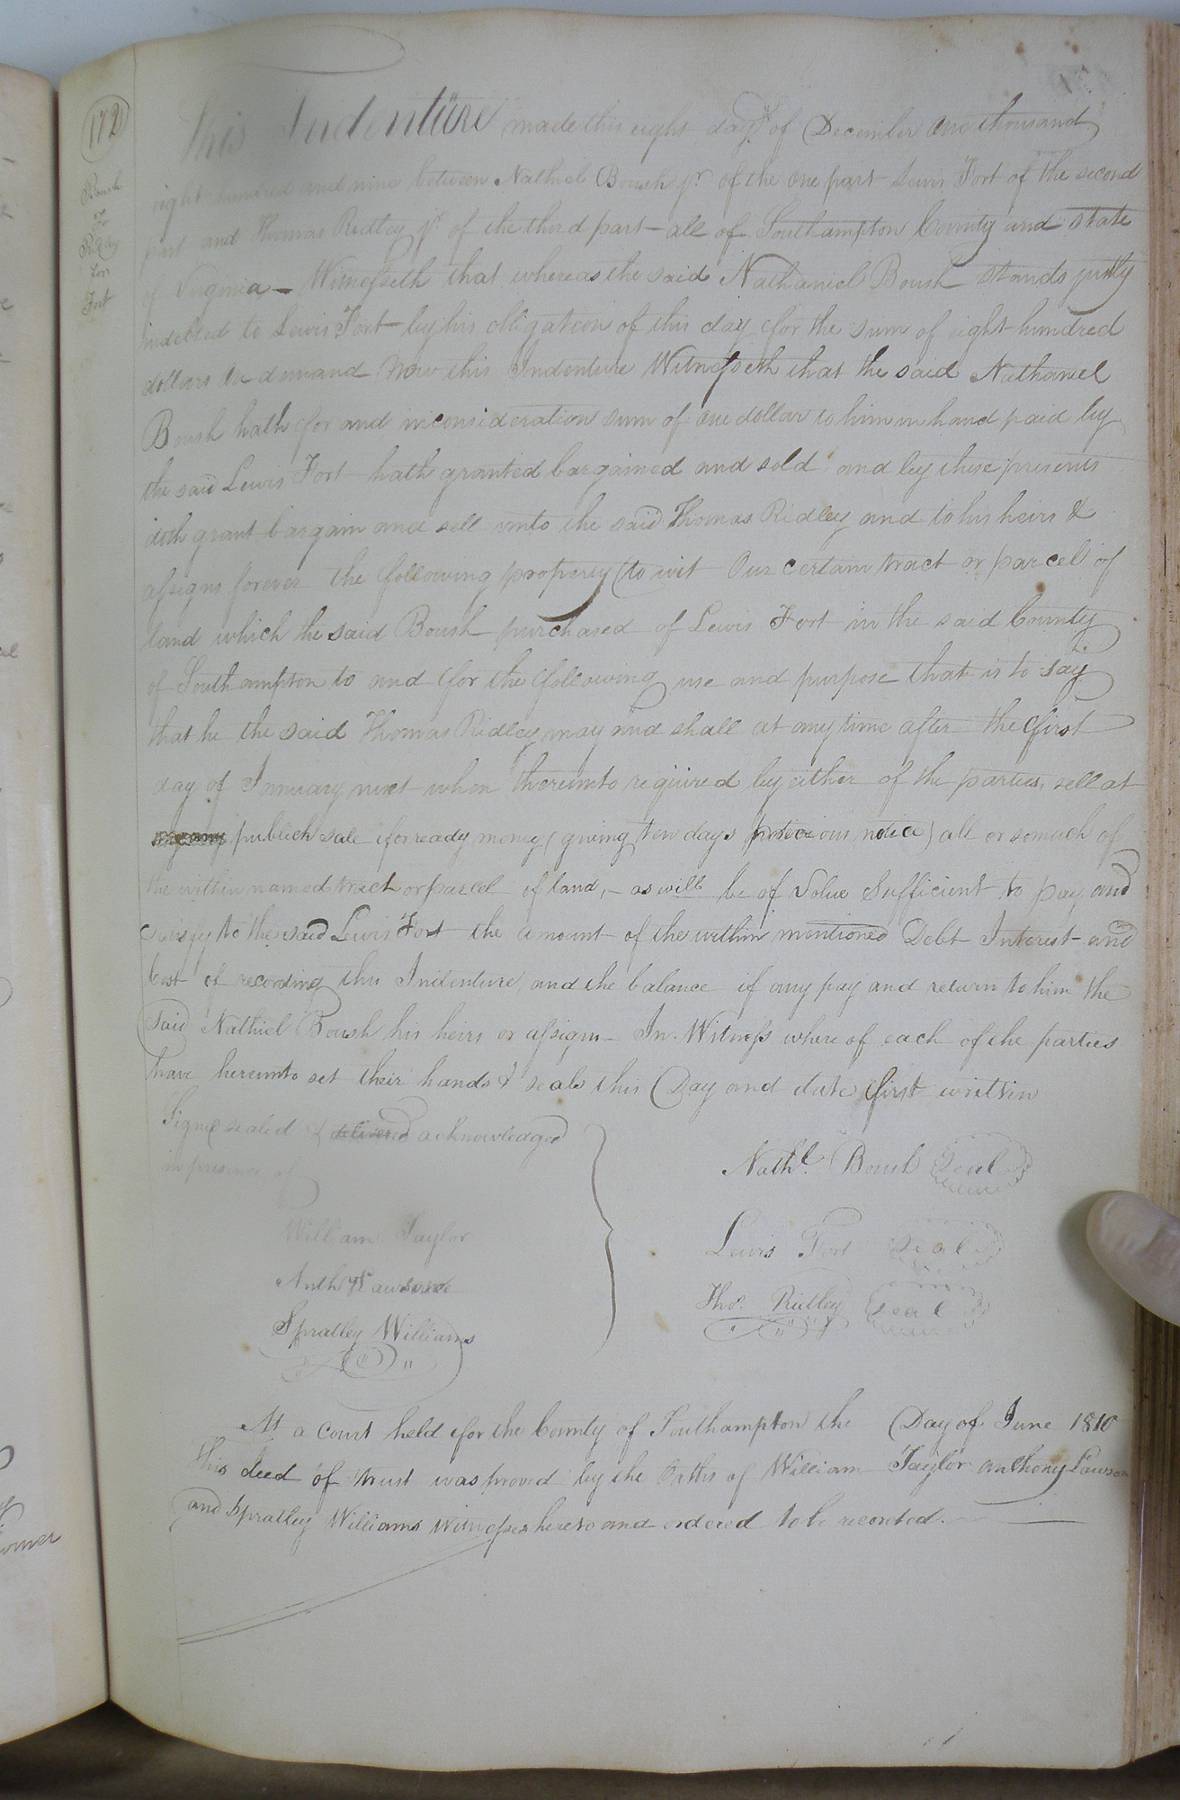 172
Boush
to
Rdly
for
Fort
This Indenture made this eight day of December One thousand
eight hundred and nine between Nathiel Boush jr. of the one part Lewis Fort of the second
part and Thomas Ridley jr. of the third part – all of Southampton County and state
of Virginia – Witnesseth that whereas the said Nathaniel Boush stands justly
indebted to Lewis Fort by his obligation of this day for the sum of eight hundred
dollars on demand Now this Indenture Witnesseth that the said Nathaniel
Boush hath for and inconsideration sum of one dollar to him in hand paid by
the said Lewis Fort hath granted bargained and sold and by these presents
doth grant bargain and sell unto the said Thomas Ridley and to his heirs &
assigns forever the following property (to wit One certain tract or parcel of
land which the said Boush purchased of Lewis Fort in the said County
of Southampton to and for the following use and purpose that is to say
that he the said Thomas Ridley may and shall at any time after the first
day of January next when thereunto required by either of the parties, sell at
publick sale for ready money (giving ten days notice) all or somuch of
the within named tract or parcel of land, – as will be of Value Sufficient to pay and
satisfy to the said Lewis Fort the amount of the within mentioned Debt Interest and
Cost of recording this Indenture, and the balance if any pay and return to him the
Said Nathiel Boush his heirs or assigns – In Witness where of each of the parties
have hereunto set their hands & seals this Day and date first written
Signd sealed & delivered acknowledged
in presence of
Nathl. Boush Seal
William Taylor
Lewis Fort Seal
Anth Lawson
Thos. Ridley Seal
Spratley Williams
At a court held for the County of Southampton the Day of June 1810
this deed of trust was proved by the Oaths of William Taylor anthony Lawson
and Spratley Williams Witnesses hereto and ordered to be recorded.